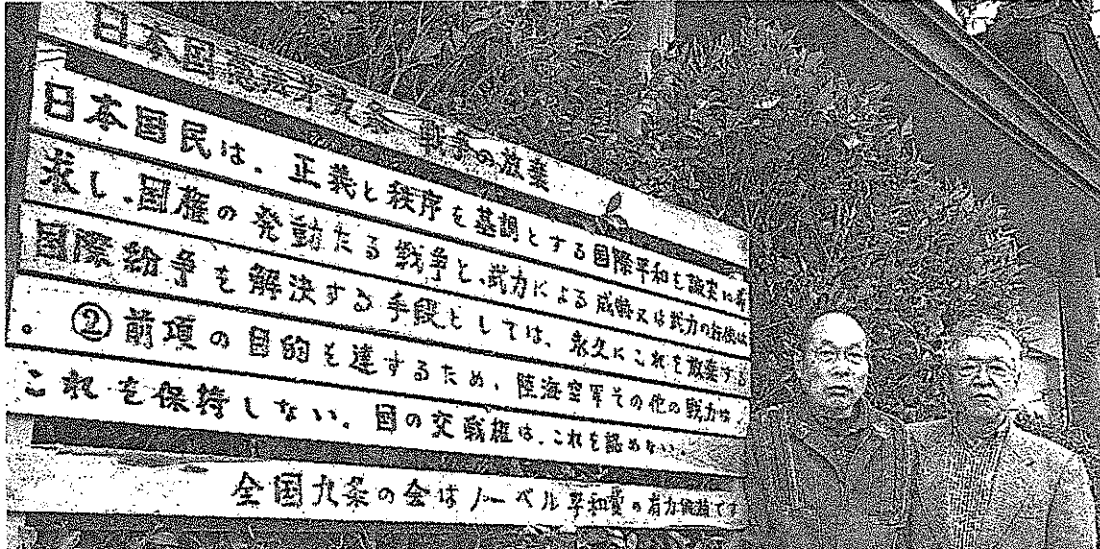 日本国憲法第九条 戦争の放棄
日本国民は、正義と秩序を基調とする国際平和を誠実に希
求し、国権の発動たる戦争と、武力による威嚇又は武力の行使は
国際紛争を解決する手段としては、永久にこれを放棄する
。②前項の目的を達するため、陸海空軍その他の戦力は
これを保持しない。国の交戦権は、これを認めない
全国九条の会はノーベル平和賞の有力候補です